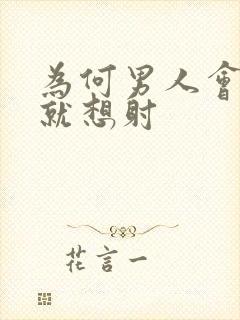 為何男人會
就想射
花言一